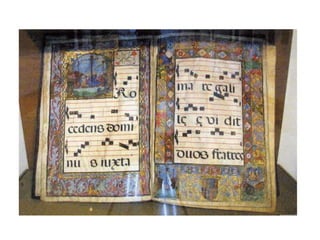 Ro
cedens domi
nu s iuxta
ma re gali
le e vi dit
duos fratres